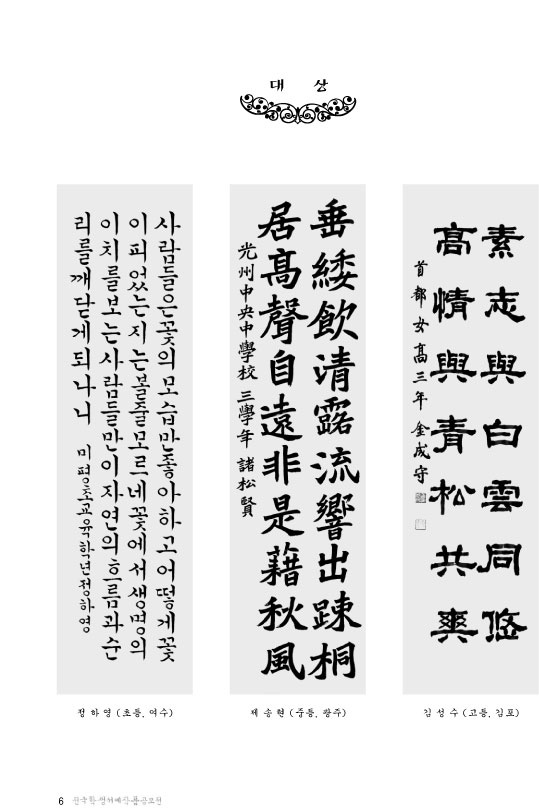 대 상
사람들은꽃의모습만좋아하고어떻게꽃
이피었는지는볼줄모르네꽃에서생명의
이치를보는사람들만이자연의흐름과순
리를깨닫게되나니 미평초교육학년정하영
垂緌飮清露流響出踈桐
居髙聲自遠非是藉秋風
光州中央中學校 三學年 諸松賢
素志與白雲同悠
髙情與青松共爽
首都女髙三年 金成守
정 하 영 (초등, 여수)
제 송 현 (중등, 광주)
김 성 수 (고등, 김포)
6